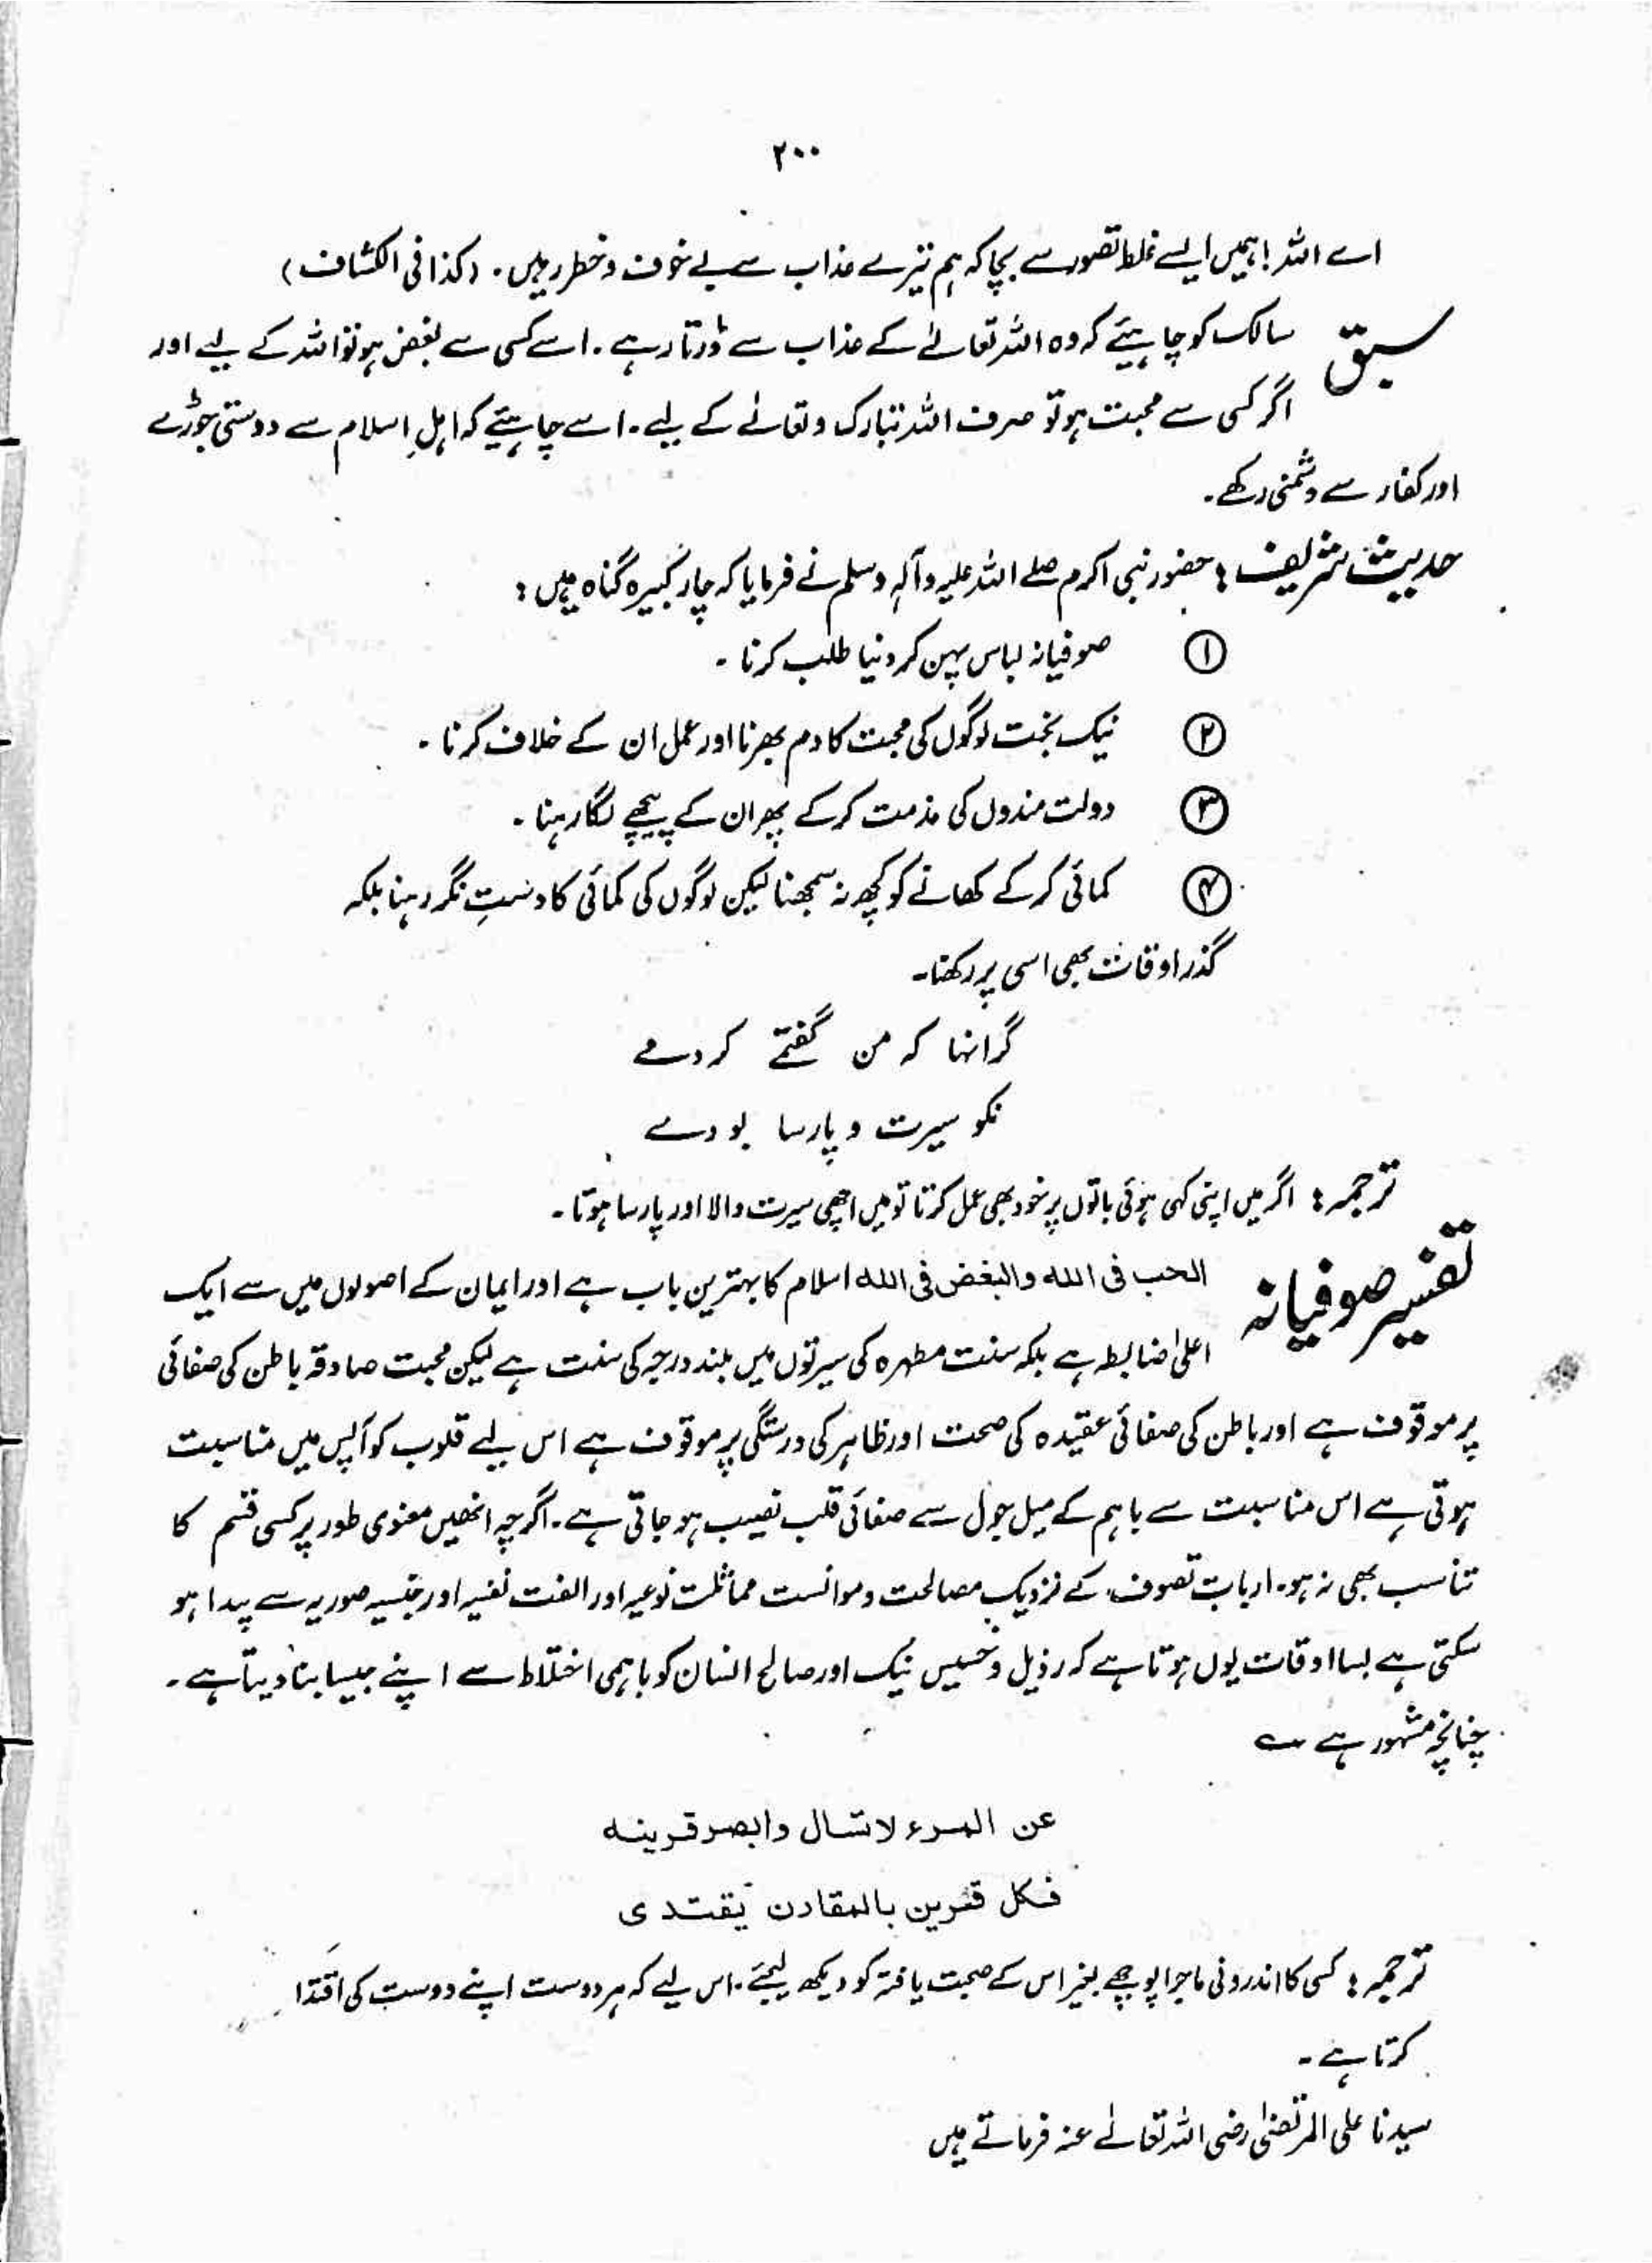 ۲۰۰
اے اللہ! ہمیں ایسے غلط تصور سے بچا کہ ہم تیرے عذاب سے بے خوف و خطر رہیں۔ (کذا فی الکشاف)
سبق سالک کو چاہیئے کہ وہ اللہ تعالےٰ کے عذاب سے ڈرتا رہے۔ اسے کسی سے بغض ہو تو اللہ کے لیے اور
اگر کسی سے محبت ہو تو صرف اللہ تبارک و تعالےٰ کے لیے۔ اسے چاہئیے کہ اہلِ اسلام سے دوستی جوڑے
اور کفار سے دشمنی رکھے۔
حدیث شریف : حضور نبی اکرم صلے اللہ علیہ وآلہٖ وسلم نے فرمایا کہ چار کبیرہ گناہ ہیں :
① صوفیانہ لباس پہن کر دنیا طلب کرنا ۔
② نیک بخت لوگوں کی محبت کا دم بھرنا اور عمل ان کے خلاف کرنا ۔
③ دولت مندوں کی مذمت کر کے پھر ان کے پیچھے لگا رہنا ۔
④ کمائی کر کے کھانے کو کچھ نہ سمجھنا لیکن لوگوں کی کمائی کا دستِ نگر رہنا بلکہ
گذر اوقات بھی اسی پر رکھنا۔
گر انہا کہ من گفتمے کردمے
نکو سیرت و پارسا بودے
ترجمہ : اگر میں اپنی کہی ہوئی باتوں پر خود بھی عمل کرتا تو میں اچھی سیرت والا اور پارسا ہوتا ۔
تفسیر صوفیانہ الحب فی اللہ والبغض فی اللہ اسلام کا بہترین باب ہے اور ایمان کے اصولوں میں سے ایک
اعلیٰ ضابطہ ہے بلکہ سنت مطہرہ کی سیرتوں میں بلند درجہ کی سنت ہے لیکن محبت صادقہ باطن کی صفائی
پر موقوف ہے اور باطن کی صفائی عقیدہ کی صحت اور ظاہر کی درستگی پر موقوف ہے اس لیے قلوب کو آپس میں مناسبت
ہوتی ہے اس مناسبت سے باہم کے میل جول سے صفائی قلب نصیب ہو جاتی ہے۔ اگرچہ انھیں معنوی طور پر کسی قسم کا
تناسب بھی نہ ہو۔ ارباب تصوف کے نزدیک مصالحت و موانست مماثلت نوعیہ اور الفت نفسیہ اور جنسیہ صوریہ سے پیدا ہو
سکتی ہے بسا اوقات یوں ہوتا ہے کہ رذیل و خسیس نیک اور صالح انسان کو باہمی اختلاط سے اپنے جیسا بنا دیتا ہے ۔
چنانچہ مشہور ہے ؎
عن المرء لا تسال وابصر قرینہ
فکل قرین بالمقارن یقتدی
ترجمہ : کسی کا اندرونی ماجرا پوچھے بغیر اس کے صحبت یافتہ کو دیکھ لیجئے۔ اس لیے کہ ہر دوست اپنے دوست کی اقتدا
کرتا ہے ۔
سیدنا علی المرتضیٰ رضی اللہ تعالےٰ عنہ فرماتے ہیں